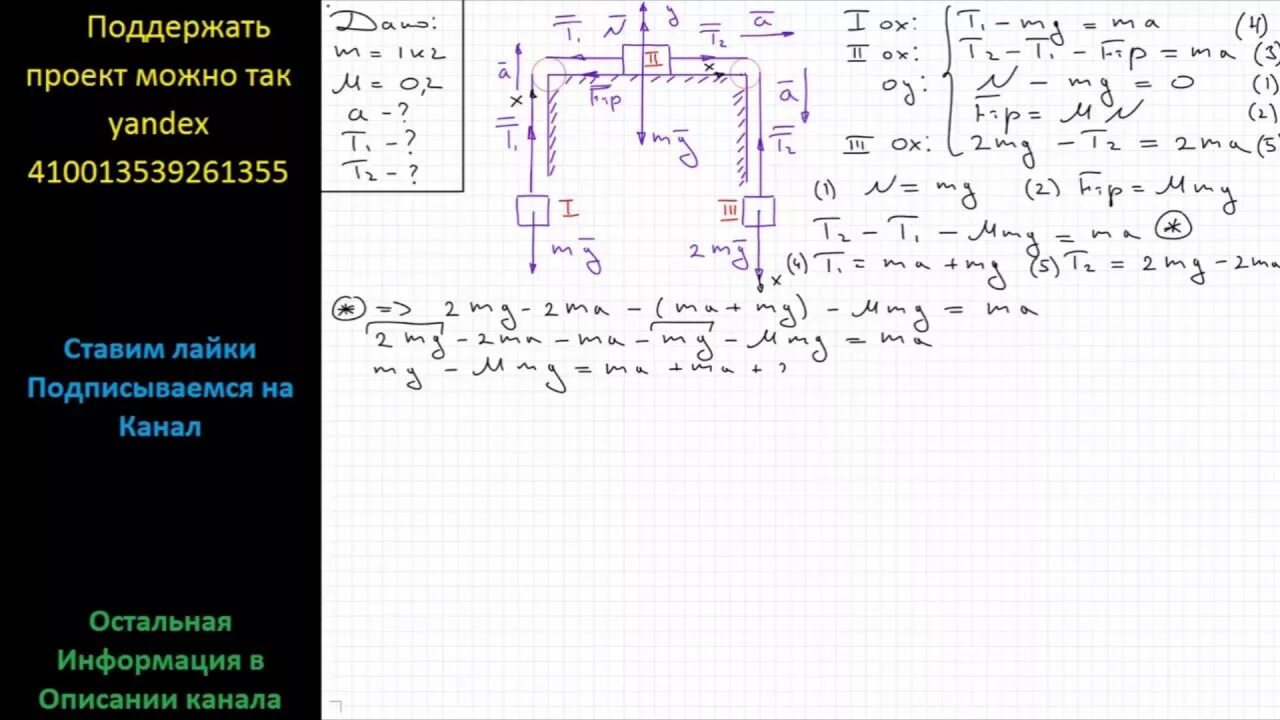 Поддержать
проект можно так
yandex
410013539261355
Ставим лайки
Подписываемся на
Канал
Остальная
Информация в
Описании канала
Дано:
m = 1кг
μ = 0,2
a - ?
T₁ - ?
T₂ - ?
y
a̅
T̅₁ N̅ T̅₂
II
a̅ x x a̅
F̅тр
T̅₁ mg̅ T̅₂
I III
mg̅ 2mg̅
x
I ox: T₁ - mg = ma (4)
II ox: T₂ - T₁ - Fтр = ma (3)
oy: N - mg = 0 (1)
Fтр = μN (2)
III ox: 2mg - T₂ = 2ma (5)
(1) N = mg (2) Fтр = μmg
T₂ - T₁ - μmg = ma (*)
(4) T₁ = ma + mg (5) T₂ = 2mg - 2ma
(*) => 2mg - 2ma - (ma + mg) - μmg = ma
2mg - 2ma - ma - mg - μmg = ma
mg - μmg = ma + ma +